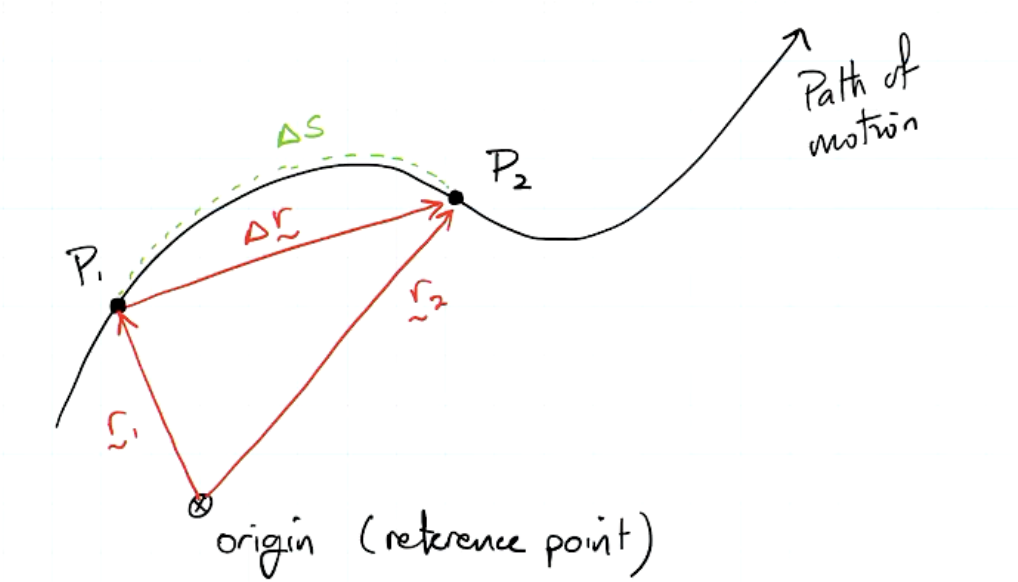 ΔS
Path of
motion
P₂
Δr̰
P₁
r̰₂
r̰₁
origin (reference point)